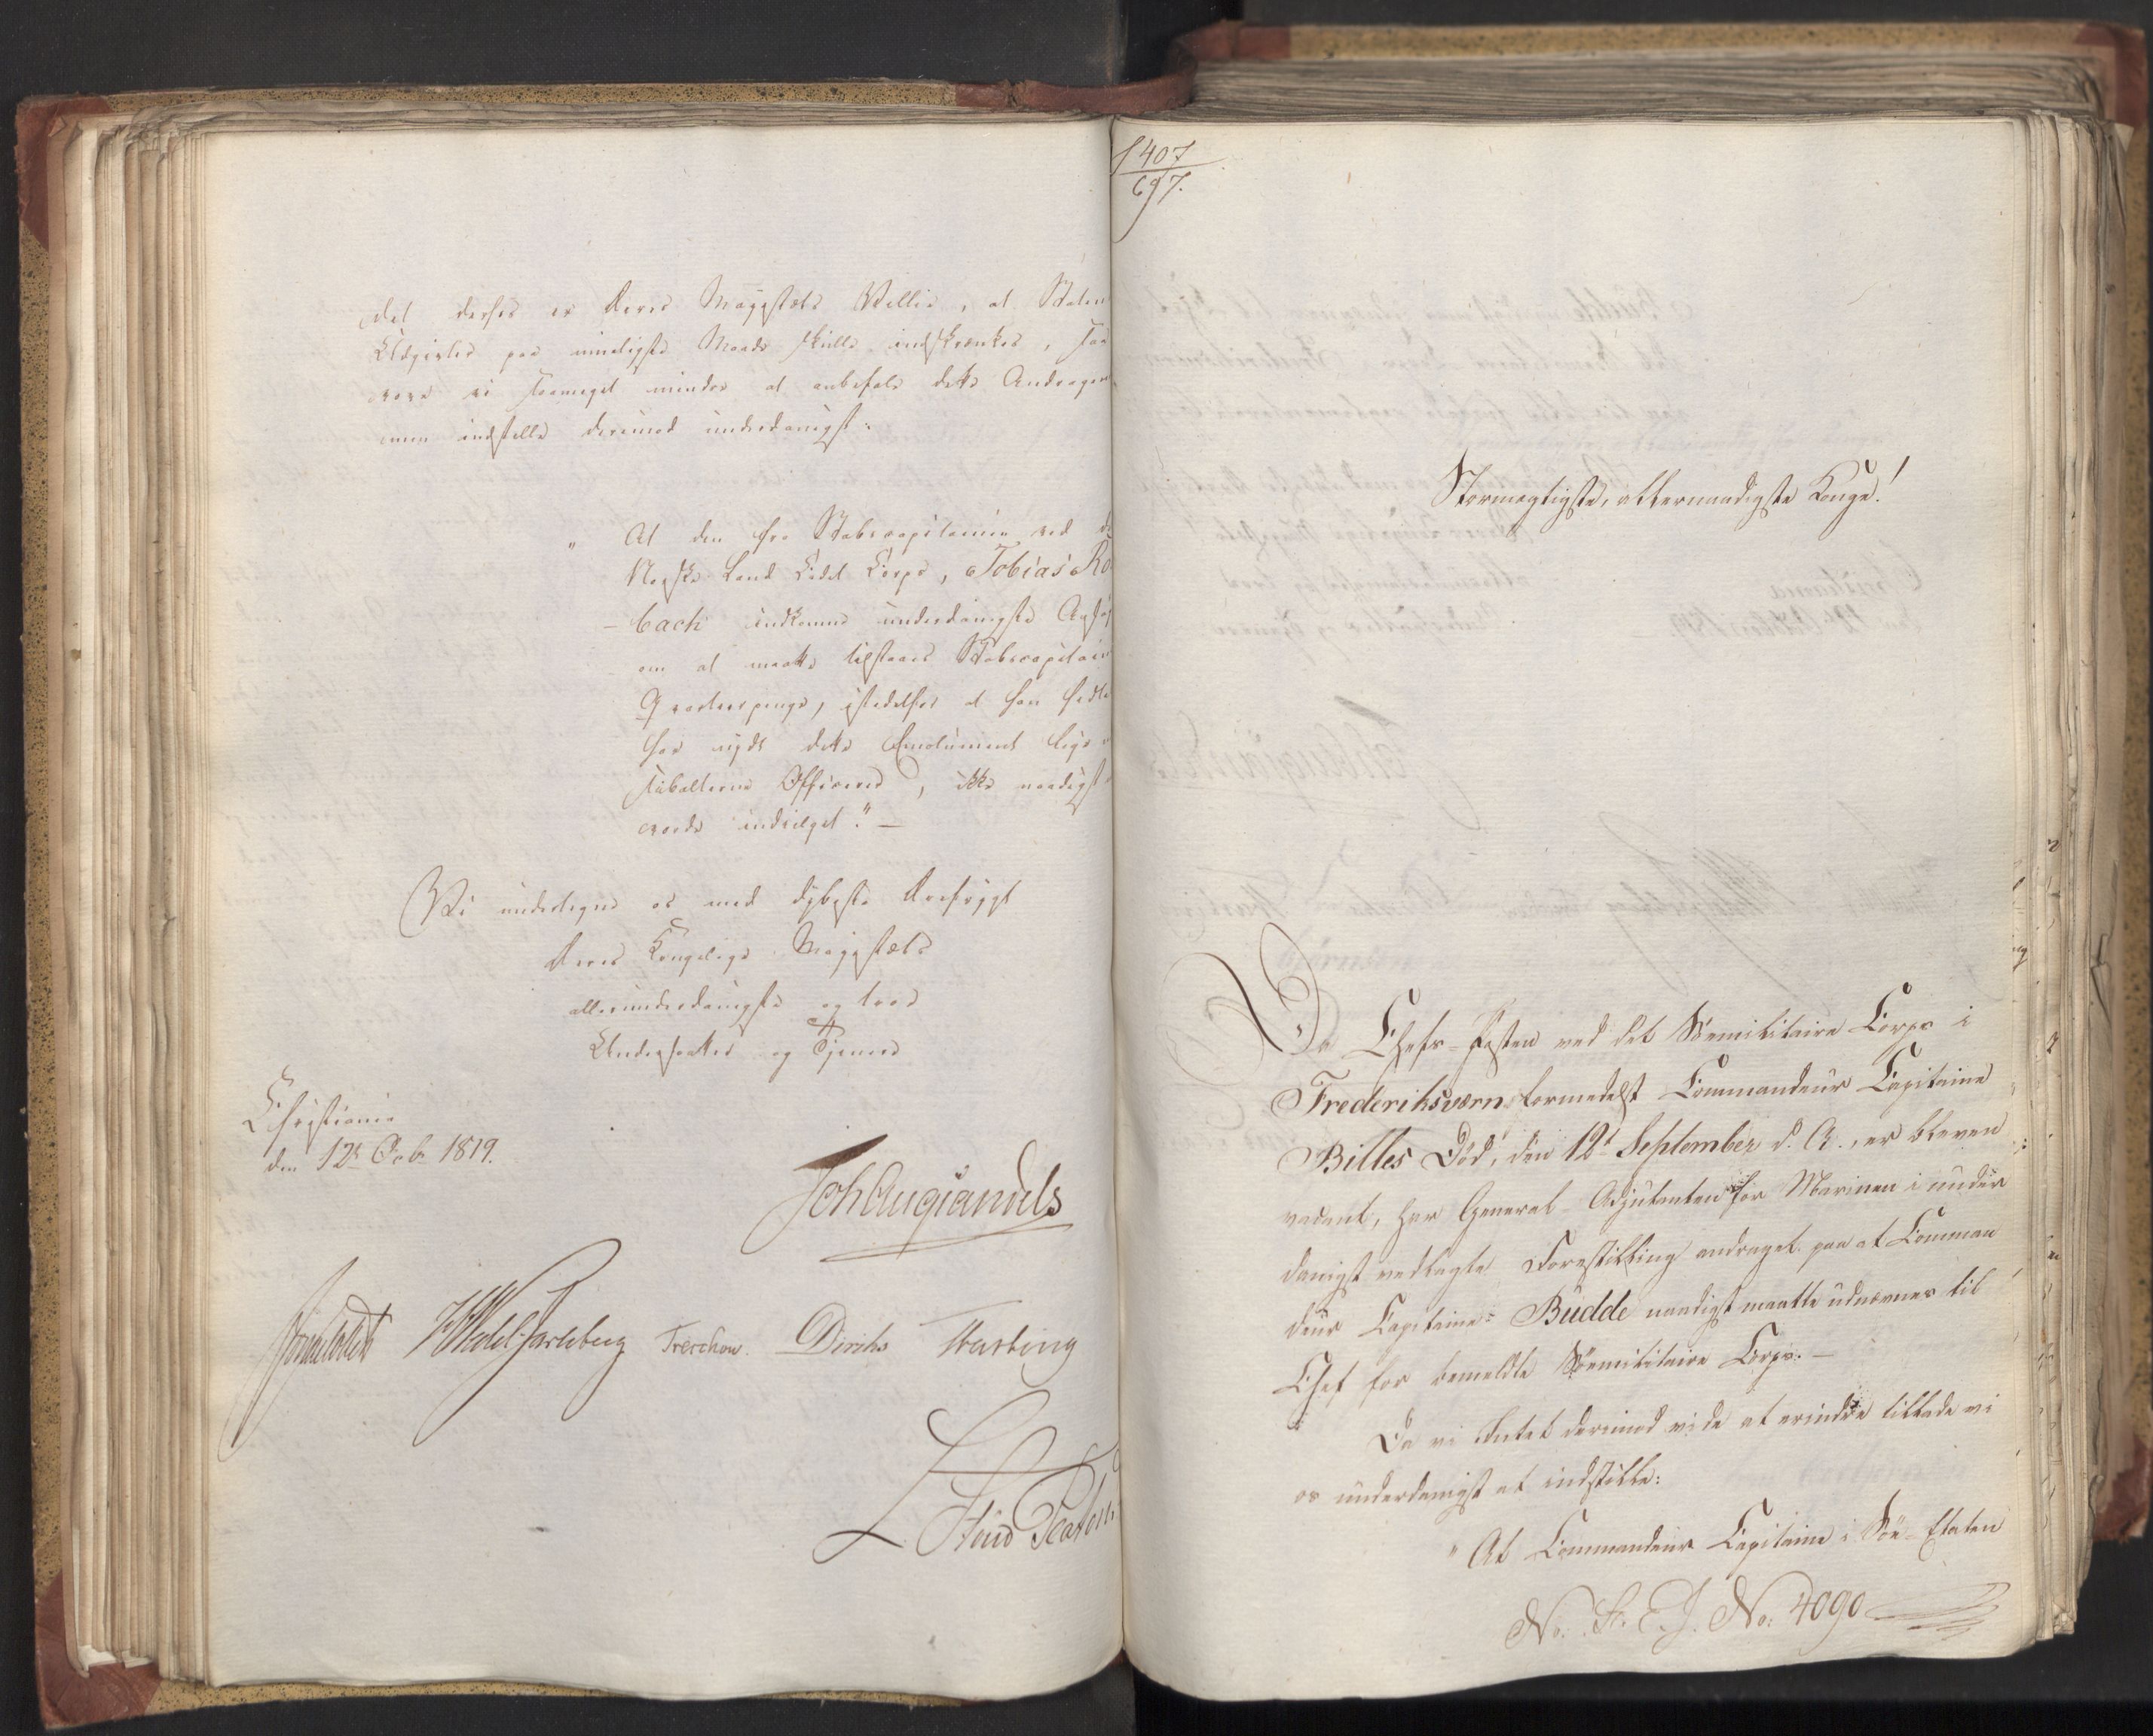 det derfor er Deres Majestæts Villie, at Staten
Udgifter paa mueligste Maade skulle indskrænkes, saa
vove vi saameget mindre at anbefale dette Andragen
men indstille derimod underdanigst:
" At den fra Stabscapitainen ved d
Norske Land Cadet Corps, Tobias Ro
- bach indkomne underdanigste Ansøg
om at maatte tilstaaes Stabscapitain
Qvarteerpenge, istedetfor at han hidtil
har nydt dette Emolument lige
subalterne Officerer, ikke naadigst
vorde indvilget." —
Vi undertegne os med dybeste Ærefrygt
Deres Kongelige Majestæts
allerunderdanigste og troe
Undersaatter og Tjenere
Christiania
den 12t Octb. 1819.
Joh Aug Sandels
Sommerhielm HWedel Jarlsberg Treschow. Diriks Fasting
L.
1407
697.
Stormægtigste, allernaadigste Konge!
Da Chefs-Posten ved det Sømilitaire Corps i
Frederiksværn formedelst Commandeur Capitaine
Billes Død, den 12t September d. A., er bleven
vacant, har General-Adjutanten for Marinen i under
danigst vedlagte Forestilling andraget paa at Comman
deur Capitaine Budde naadigst maatte udnævnes til
Chef for bemeldte Sømilitaire Corps. —
Da vi Intet derimod vide at erindre tillade vi
os underdanigst at indstille:
" At Commandeur Capitaine i Søe-Etaten
No. St. E. J. No: 4090